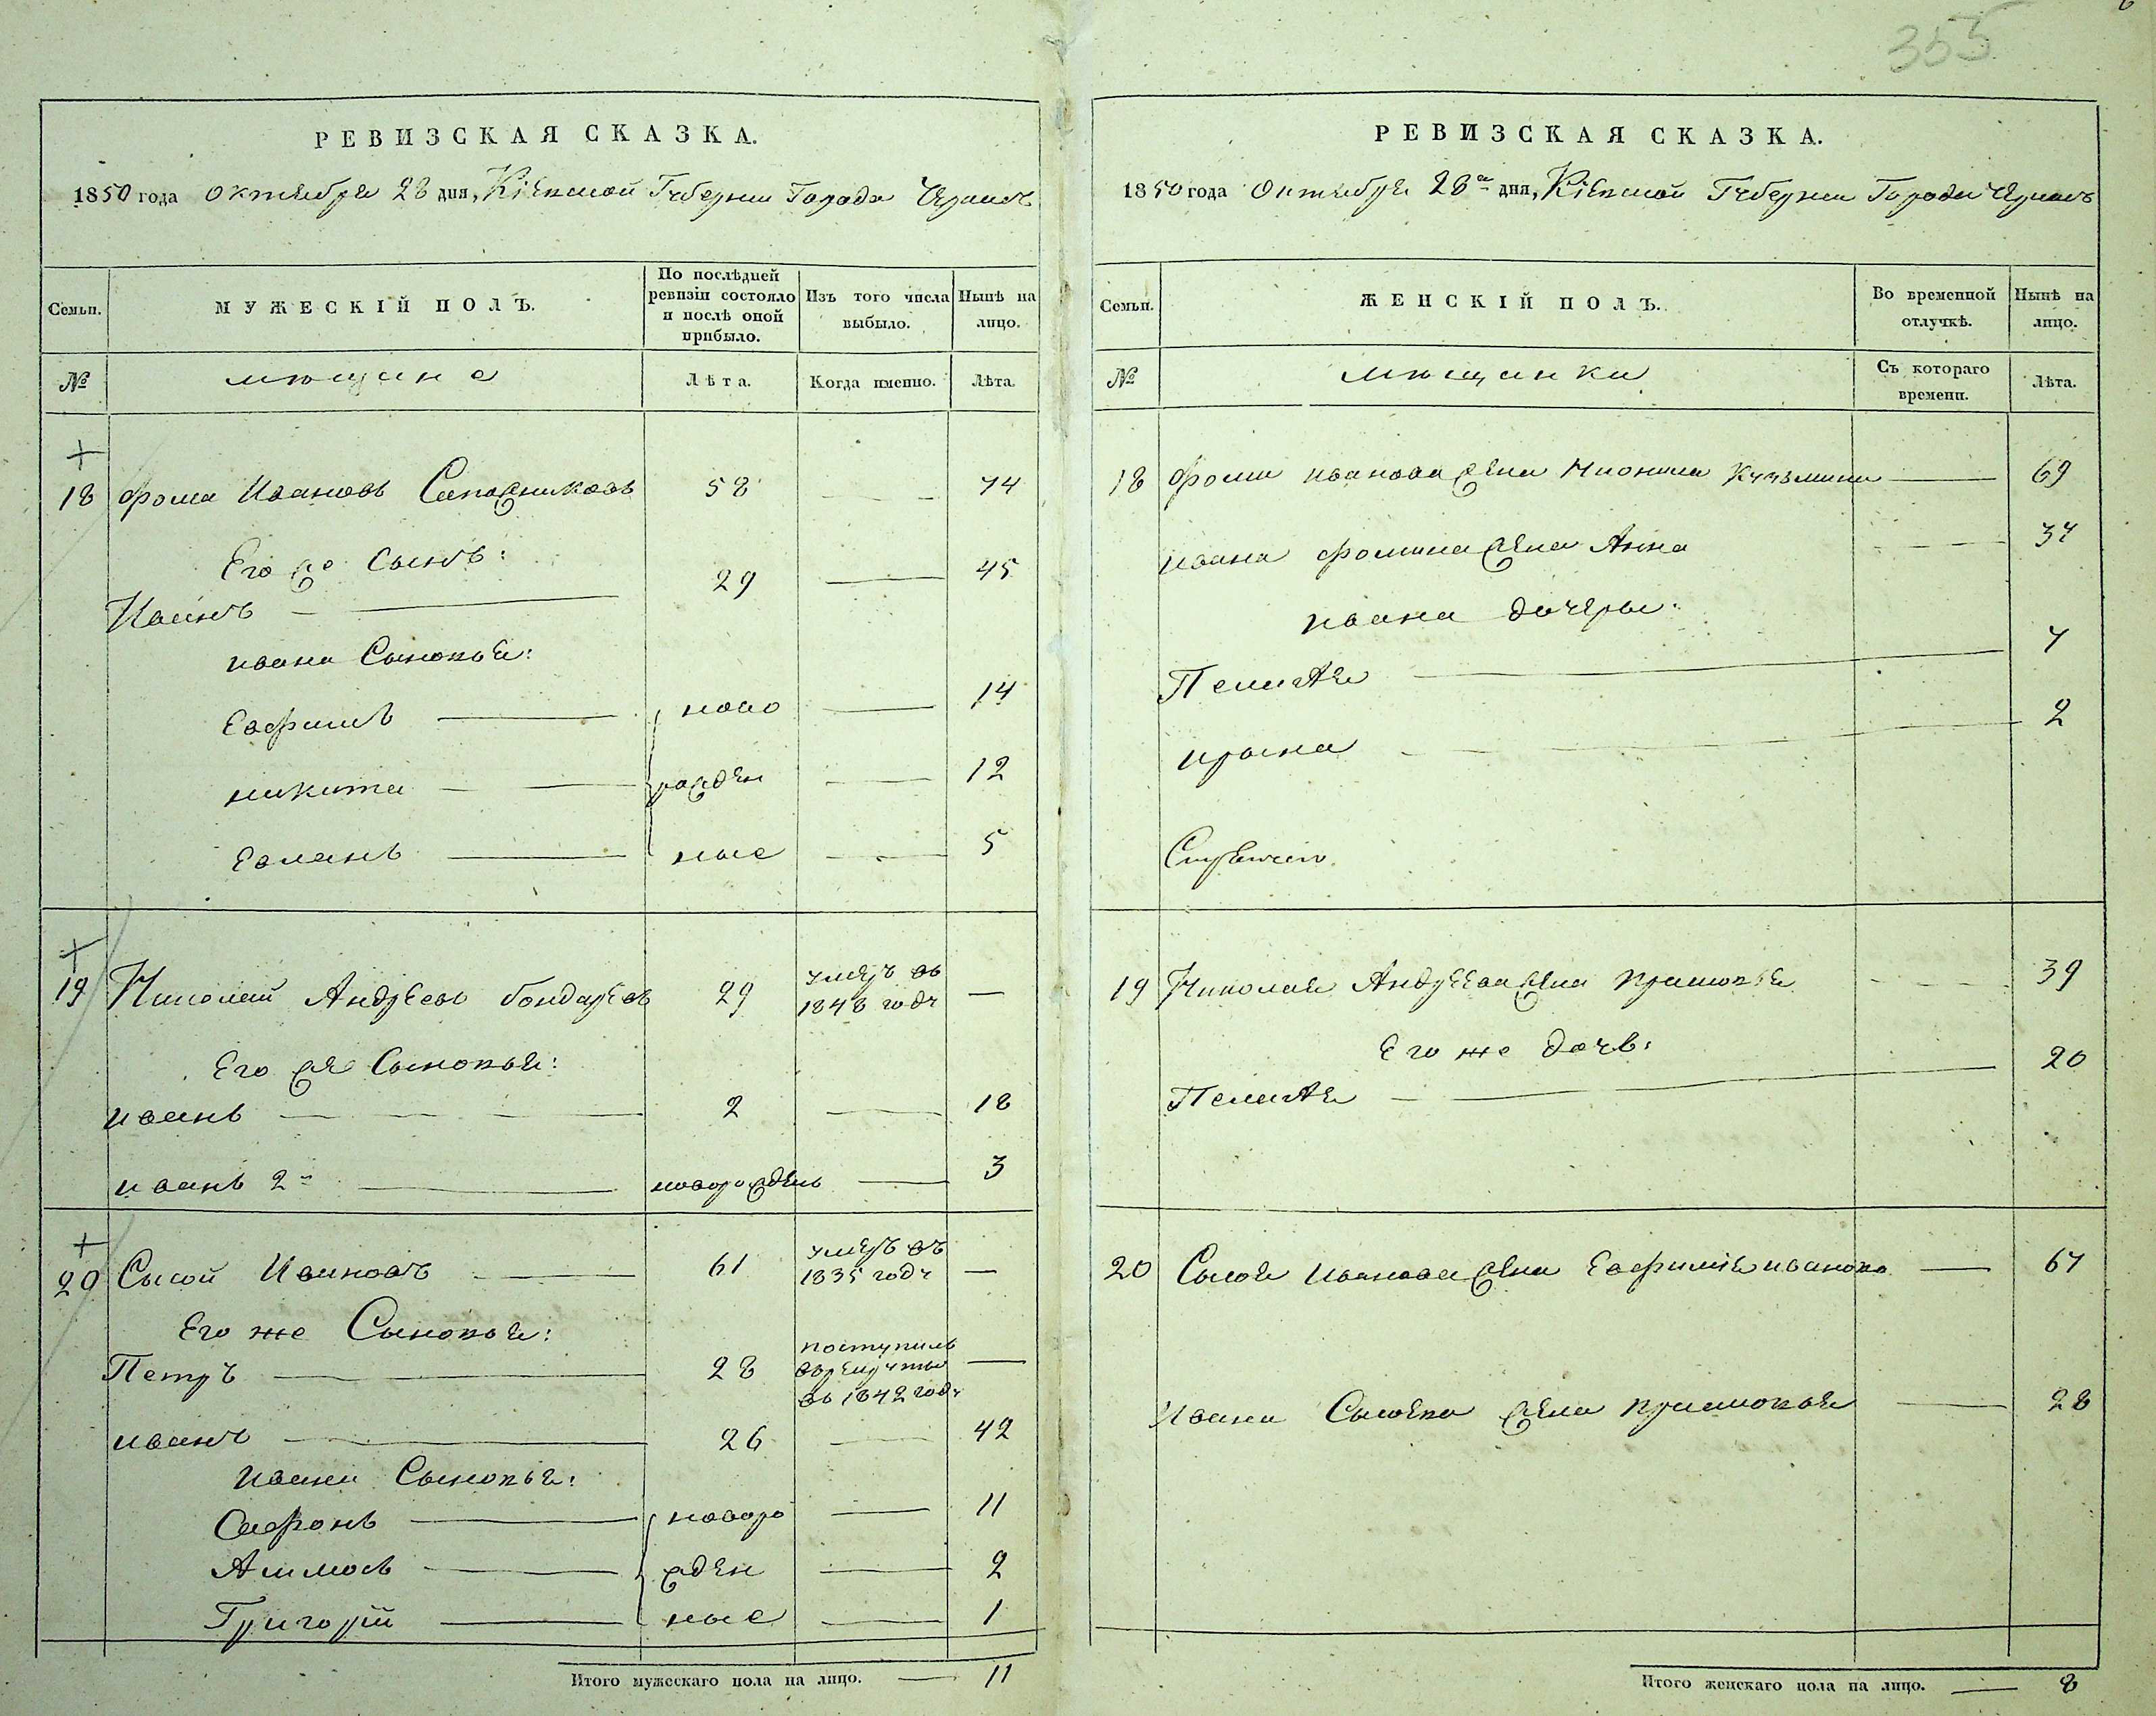 355
РЕВИЗСКАЯ СКАЗКА.
1850 года октября 28 дня, Кіевской Губерніи Города
Семьи.
МУЖЕСКІЙ ПОЛЪ.
По послѣдней ревизіи состояло и послѣ оной прибыло.
Изъ того числа выбыло.
Нынѣ на лицо.
№
мещане
Лѣта.
Когда именно.
Лѣта.
18 Фома Ивановъ Сапожниковъ 58 — 74
Его же сынъ:
Иванъ — 29 — 45
Ивана Сыновья:
Евфимъ — ново — 14
Никита — рожден — 12
— ные — 5
19 Николай Андреевъ Бондаревъ 29 умеръ въ 1848 году —
Его же Сыновья:
Иванъ — 2 — 18
Иванъ 2й — новорожденъ — 3
20 Сысой Ивановъ — 61 умеръ въ 1835 году —
Его же Сыновья:
Петръ — 28 поступилъ в рекруты въ 1842 году —
Иванъ — 26 — 42
Ивана Сыновья:
Сафонъ — новоро — 11
— жден — 2
Григорій — ные — 1
Итого мужескаго пола на лицо. — 11
РЕВИЗСКАЯ СКАЗКА.
1850 года Октября 28го дня, Кіевской Губерніи Города
Семьи.
ЖЕНСКІЙ ПОЛЪ.
Во временной отлучкѣ.
Нынѣ на лицо.
№
мещанки
Съ котораго времени.
Лѣта.
18 Фомы Иванова жена Кузьмина — 69
Ивана Фомина жена Анна — 37
Ивана дочеры:
Пелагея — 7
Ирына — 2
19 Николая Андреева жена Прасковья — 39
Его же дочь:
Пелагея — 20
20 Сысоя Иванова жена Евфимія Иванова — 67
Ивана Сысоева жена Прасковья — 28
Итого женскаго пола на лицо. — 8